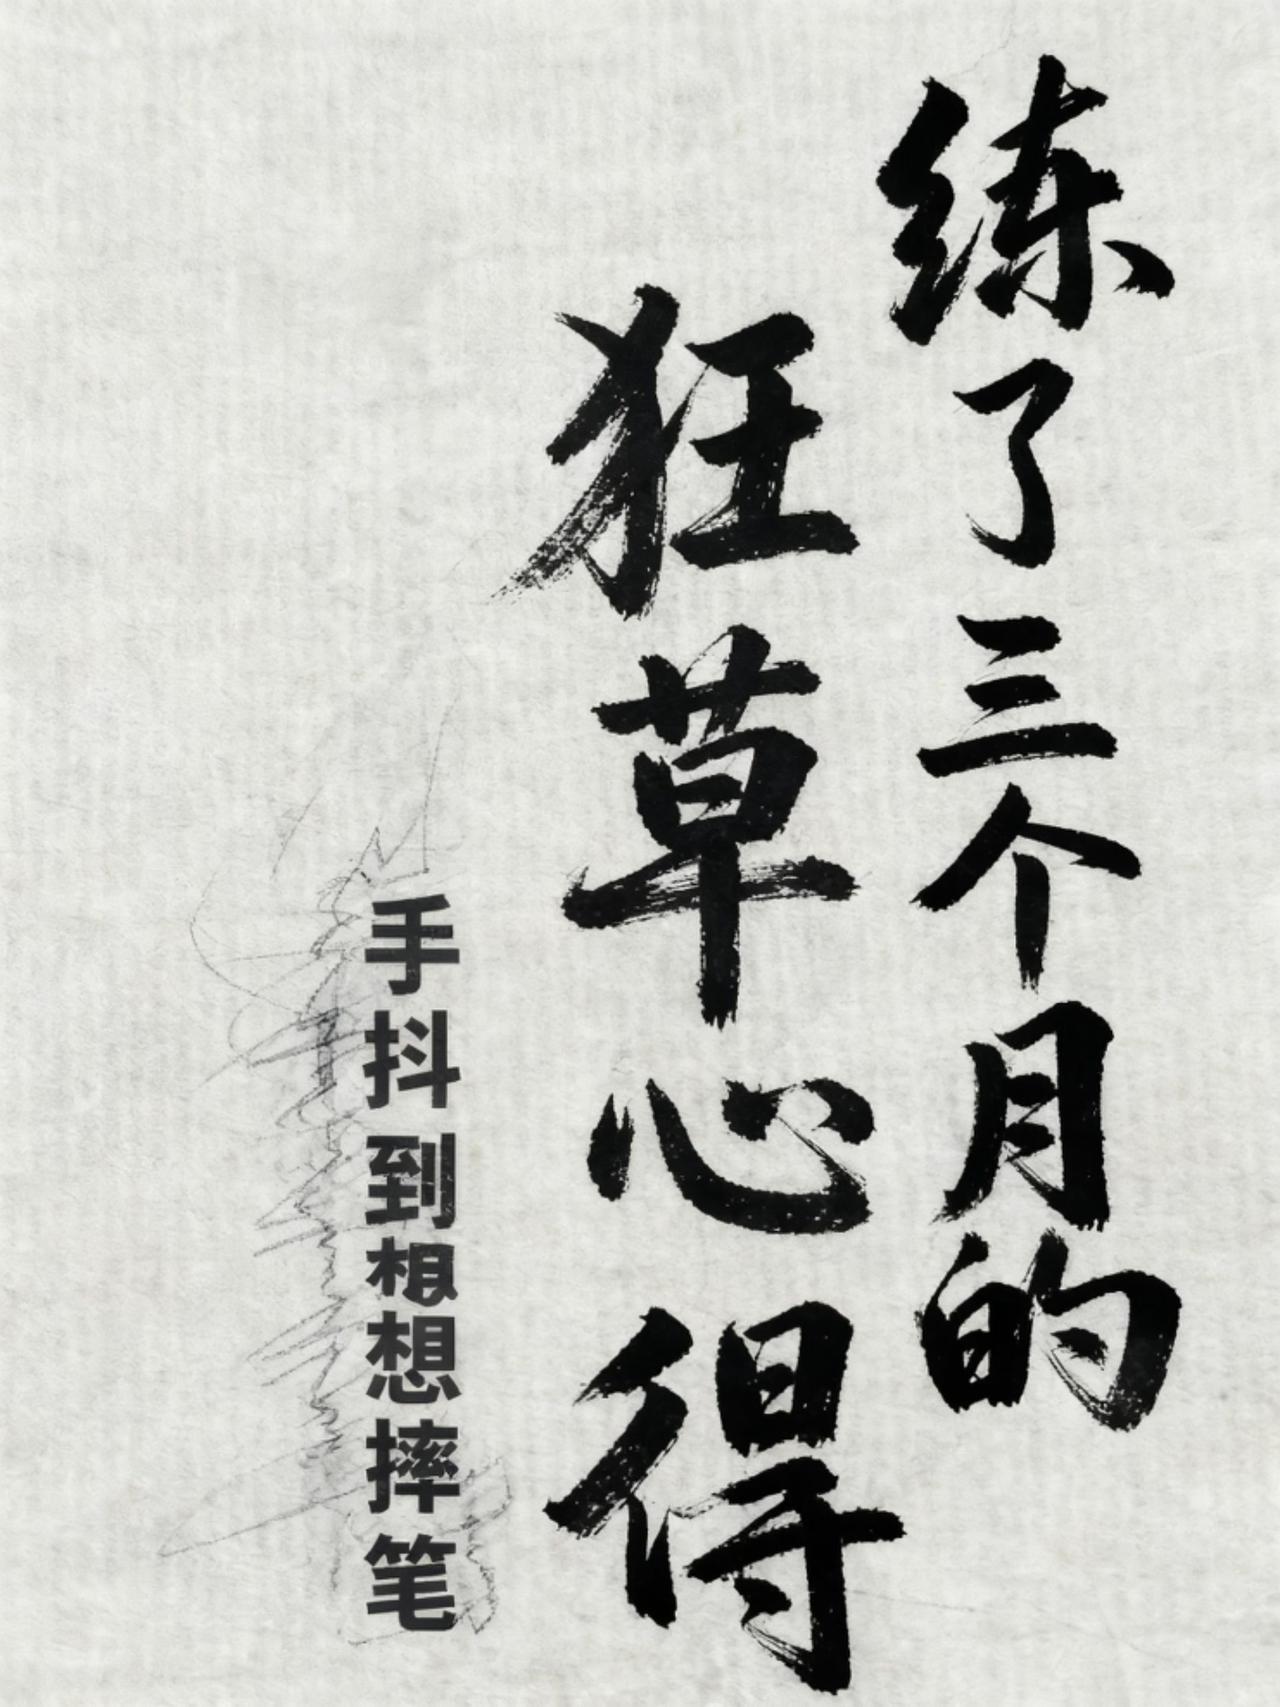 练了三个月的
狂草心得
手抖到想想摔笔